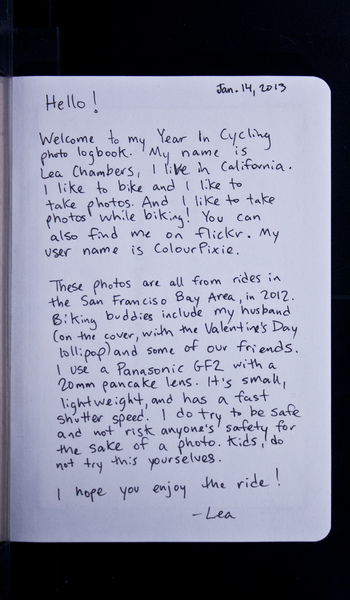 Jan. 14, 2013
Hello!
Welcome to my Year In Cycling
photo logbook. My name is
Lea Chambers, I live in California.
I like to bike and I like to
take photos. And I like to take
photos while biking! You can
also find me on flickr. My
user name is ColourPixie.
These photos are all from rides in
the San Franciso Bay Area, in 2012.
Biking buddies include my husband
(on the cover, with the Valentine's Day
lollipop) and some of our friends.
I use a Panasonic GF2 with a
20mm pancake lens. It's small,
lightweight, and has a fast
shutter speed. I do try to be safe
and not risk anyone's safety for
the sake of a photo. Kids, do
not try this yourselves.
I hope you enjoy the ride!
- Lea